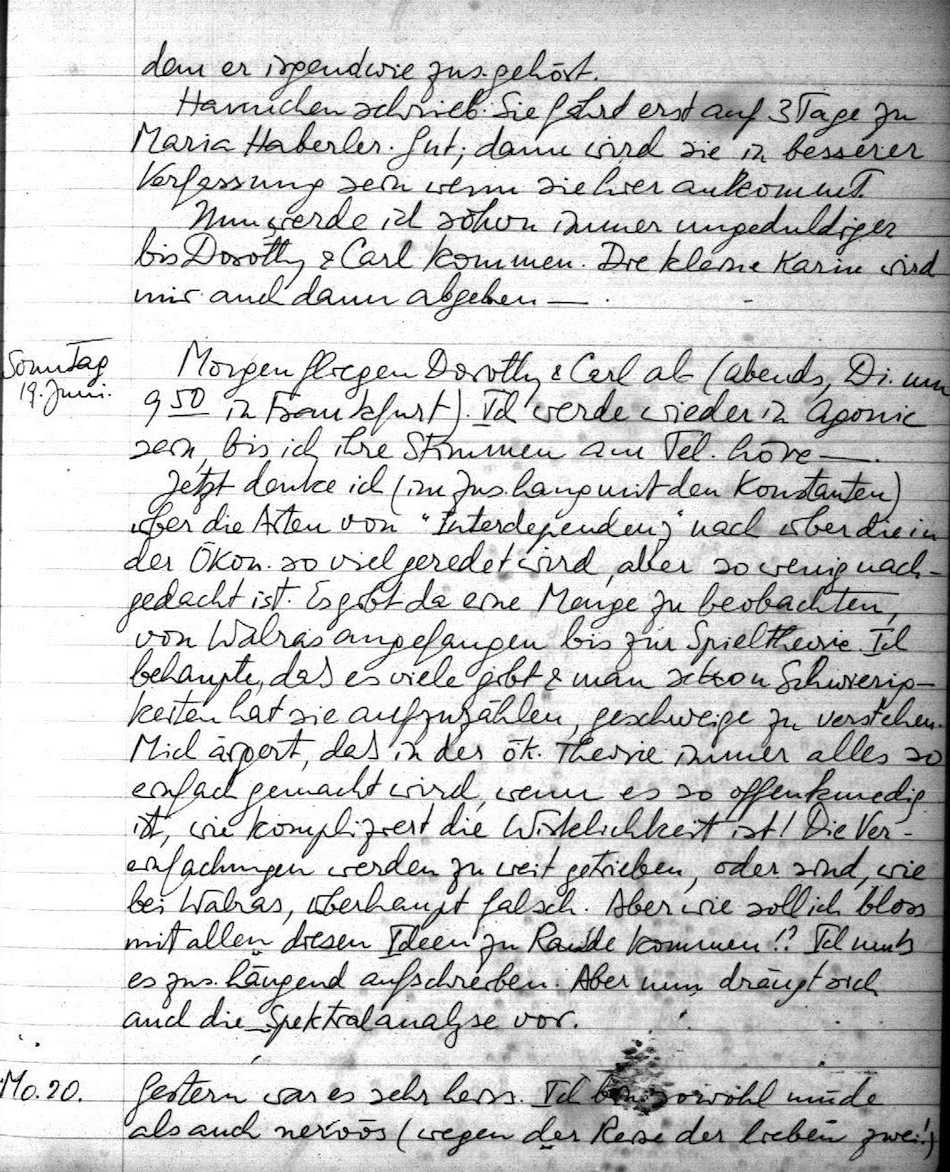 dem er irgendwie zus. gehört.
Hannchen schrieb. Sie fährt erst auf 3 Tage zu
Maria Haberler. Gut; dann wird sie in besserer
Verfassung sein wenn sie hier ankommt.
Nun werde ich schon immer ungeduldiger
bis Dorothy & Carl kommen. Die kleine Karin wird
mir auch dann abgehen — .
Sonntag
19. Juni.
Morgen fliegen Dorothy & Carl ab (abends, Di. um
9 50 in Frankfurt). Ich werde wieder in Agonie
sein, bis ich ihre Stimmen am Tel. höre — .
Jetzt denke ich (im Zus.hang mit den Konstanten)
über die Arten von "Interdependenz" nach über die in
der Ökon. so viel geredet wird, aber so wenig nach-
gedacht ist. Es gibt da eine Menge zu beobachten,
von Walras angefangen bis zur Spieltheorie. Ich
behaupte, daß es viele gibt & man schon Schwierig-
keiten hat sie aufzuzählen, geschweige zu verstehen.
Mich ärgert, daß in der ök. Theorie immer alles so
einfach gemacht wird, wenn es so offenkundig
ist, wie kompliziert die Wirklichkeit ist! Die Ver-
einfachungen werden zu weit getrieben, oder sind, wie
bei Walras, überhaupt falsch. Aber wie soll ich bloss
mit allen diesen Ideen zu Rande kommen!? Ich muß
es zus.hängend aufschreiben. Aber nun drängt sich
auch die Spektralanalyse vor.
Mo. 20.
Gestern war es sehr heiss. Ich bin sowohl müde
als auch nervös (wegen der Reise der lieben zwei!)